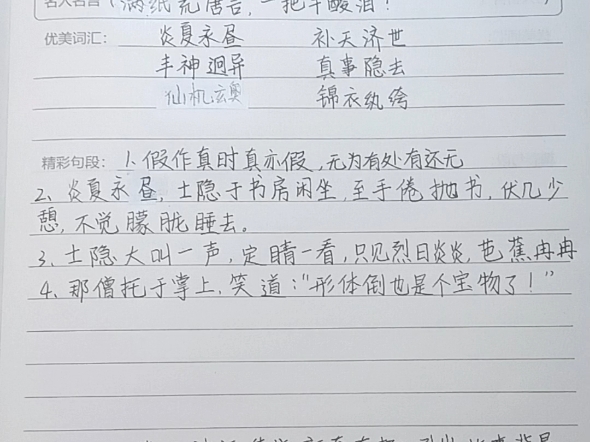 名人名言（满纸荒唐言，一把辛酸泪！
优美词汇： 炎夏永昼 补天济世
丰神迥异 真事隐去
仙机玄奥 锦衣纨绔
精彩句段： 1、假作真时真亦假，无为有处有还无
2、炎夏永昼，士隐于书房闲坐，至手倦抛书，伏几少
憩，不觉朦胧睡去。
3、士隐大叫一声，定睛一看，只见烈日炎炎，芭蕉冉冉
4、那僧托于掌上，笑道：“形体倒也是个宝物了！”